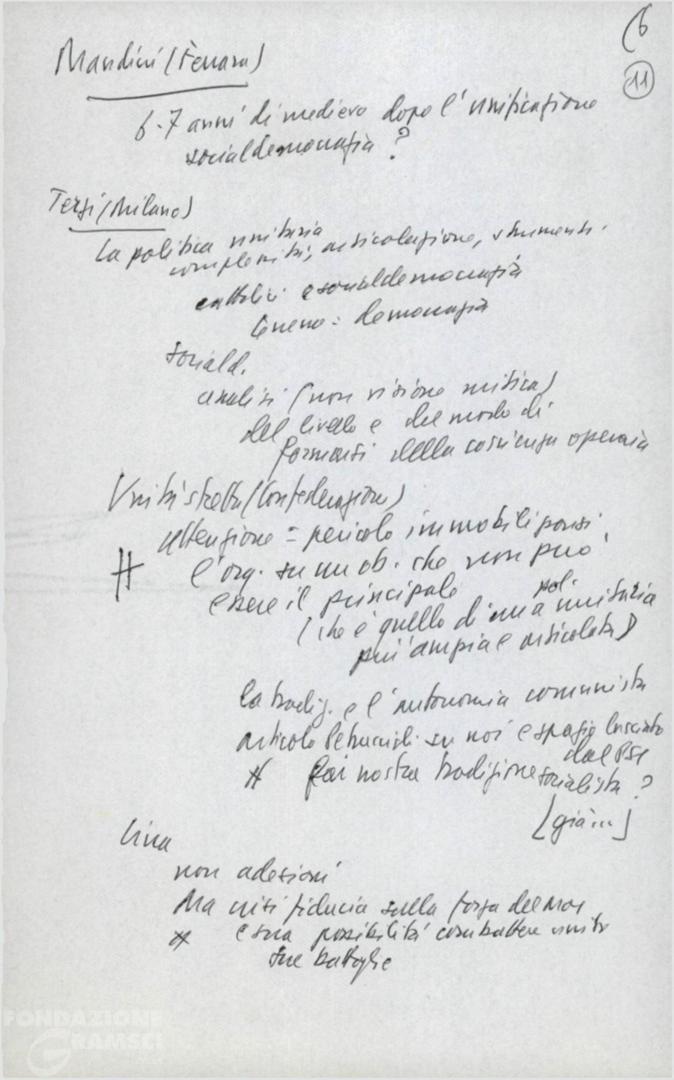 (6
11
Mandini (Ferrara)
6-7 anni di medievo dopo l'unificazione
socialdemocrazia?
Terzi (Milano)
La politica unitaria
complessità, articolazione, strumenti.
cattolici e socialdemocrazia
terreno = democrazia
sociald.
analisi (non visione mitica)
del livello e del modo di
formarsi della coscienza operaia
Unità stretta (Confederazione)
attenzione = pericolo immobilizzarsi
# l'org. su un ob. che non può
essere il principale
(che è quello di una pol. unitaria
più ampia e articolata)
la tradiz. e l'autonomia comunista
articolo Petruccioli su noi e spazio lasciato
dal PSI
# Poi nostra tradizione socialista?
[già...]
Cina
non adesioni
Ma crisi fiducia sulla forza del mov
# e sua possibilità combattere unito
sue battaglie
FONDAZIONE
GRAMSCI